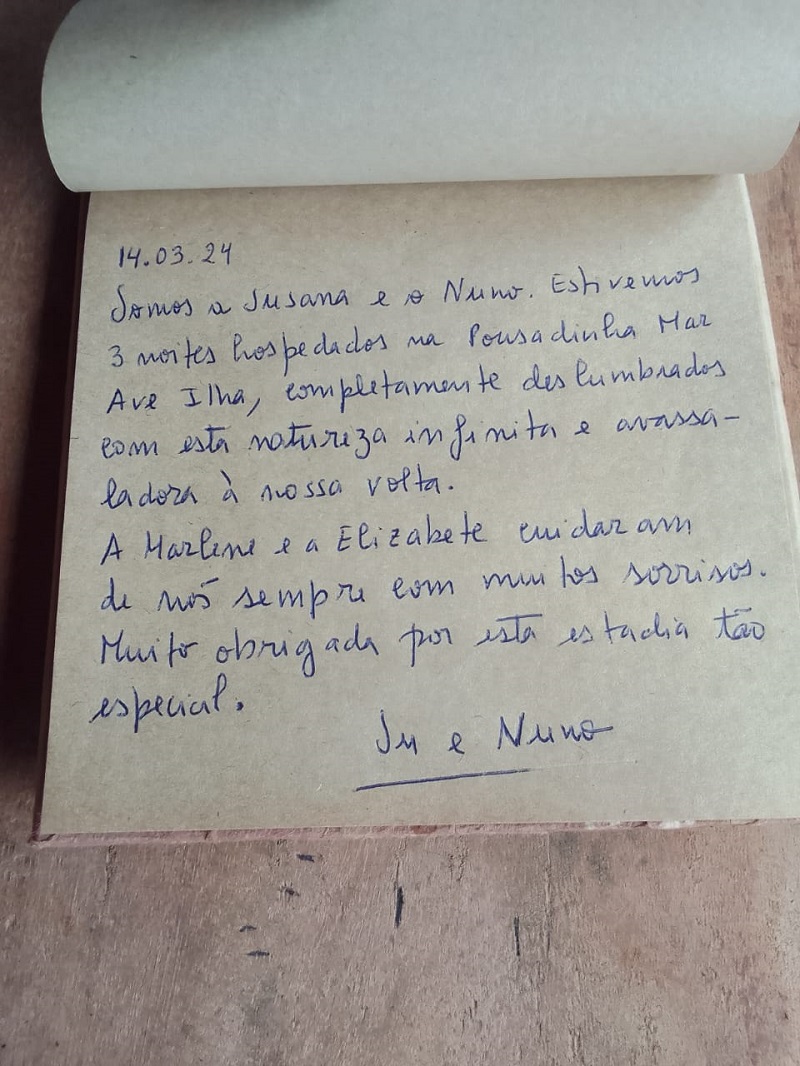 14.03.24
Somos a Susana e o Nuno. Estivemos
3 noites hospedados na Pousadinha Mar
Ave Ilha, completamente deslumbrados
com esta natureza infinita e avassa-
ladora à nossa volta.
A Marlene e a Elizabete cuidaram
de nós sempre com muitos sorrisos.
Muito obrigada por esta estadia tão
especial.
Su e Nuno